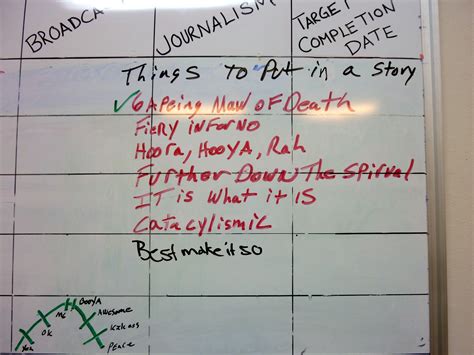 BROADCA
JOURNALISM
TARGET
COMPLETION
DATE
Things to Put in a Story
✓GAPeing Maw OF Death
Fiery inForno
Hoora, HooyA, Rah
Further Down The Spirval
IT is What it IS
Catacylismic
Best make it so
OOOYA
Me
AWESOME
OK
Kickass
Yeah
PEACE